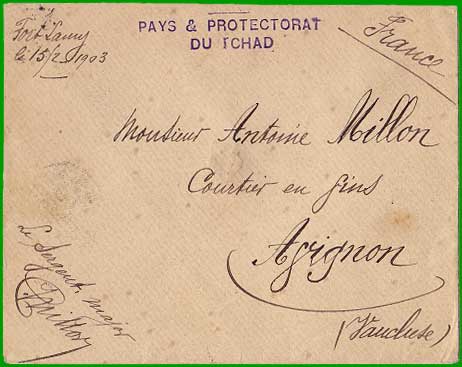 Fort Lamy
le 15/2 1903
PAYS & PROTECTORAT
DU TCHAD
France
Monsieur Antoine Millon
Courtier en fins
Avignon
(Vaucluse)
Le Sergent major
Millon